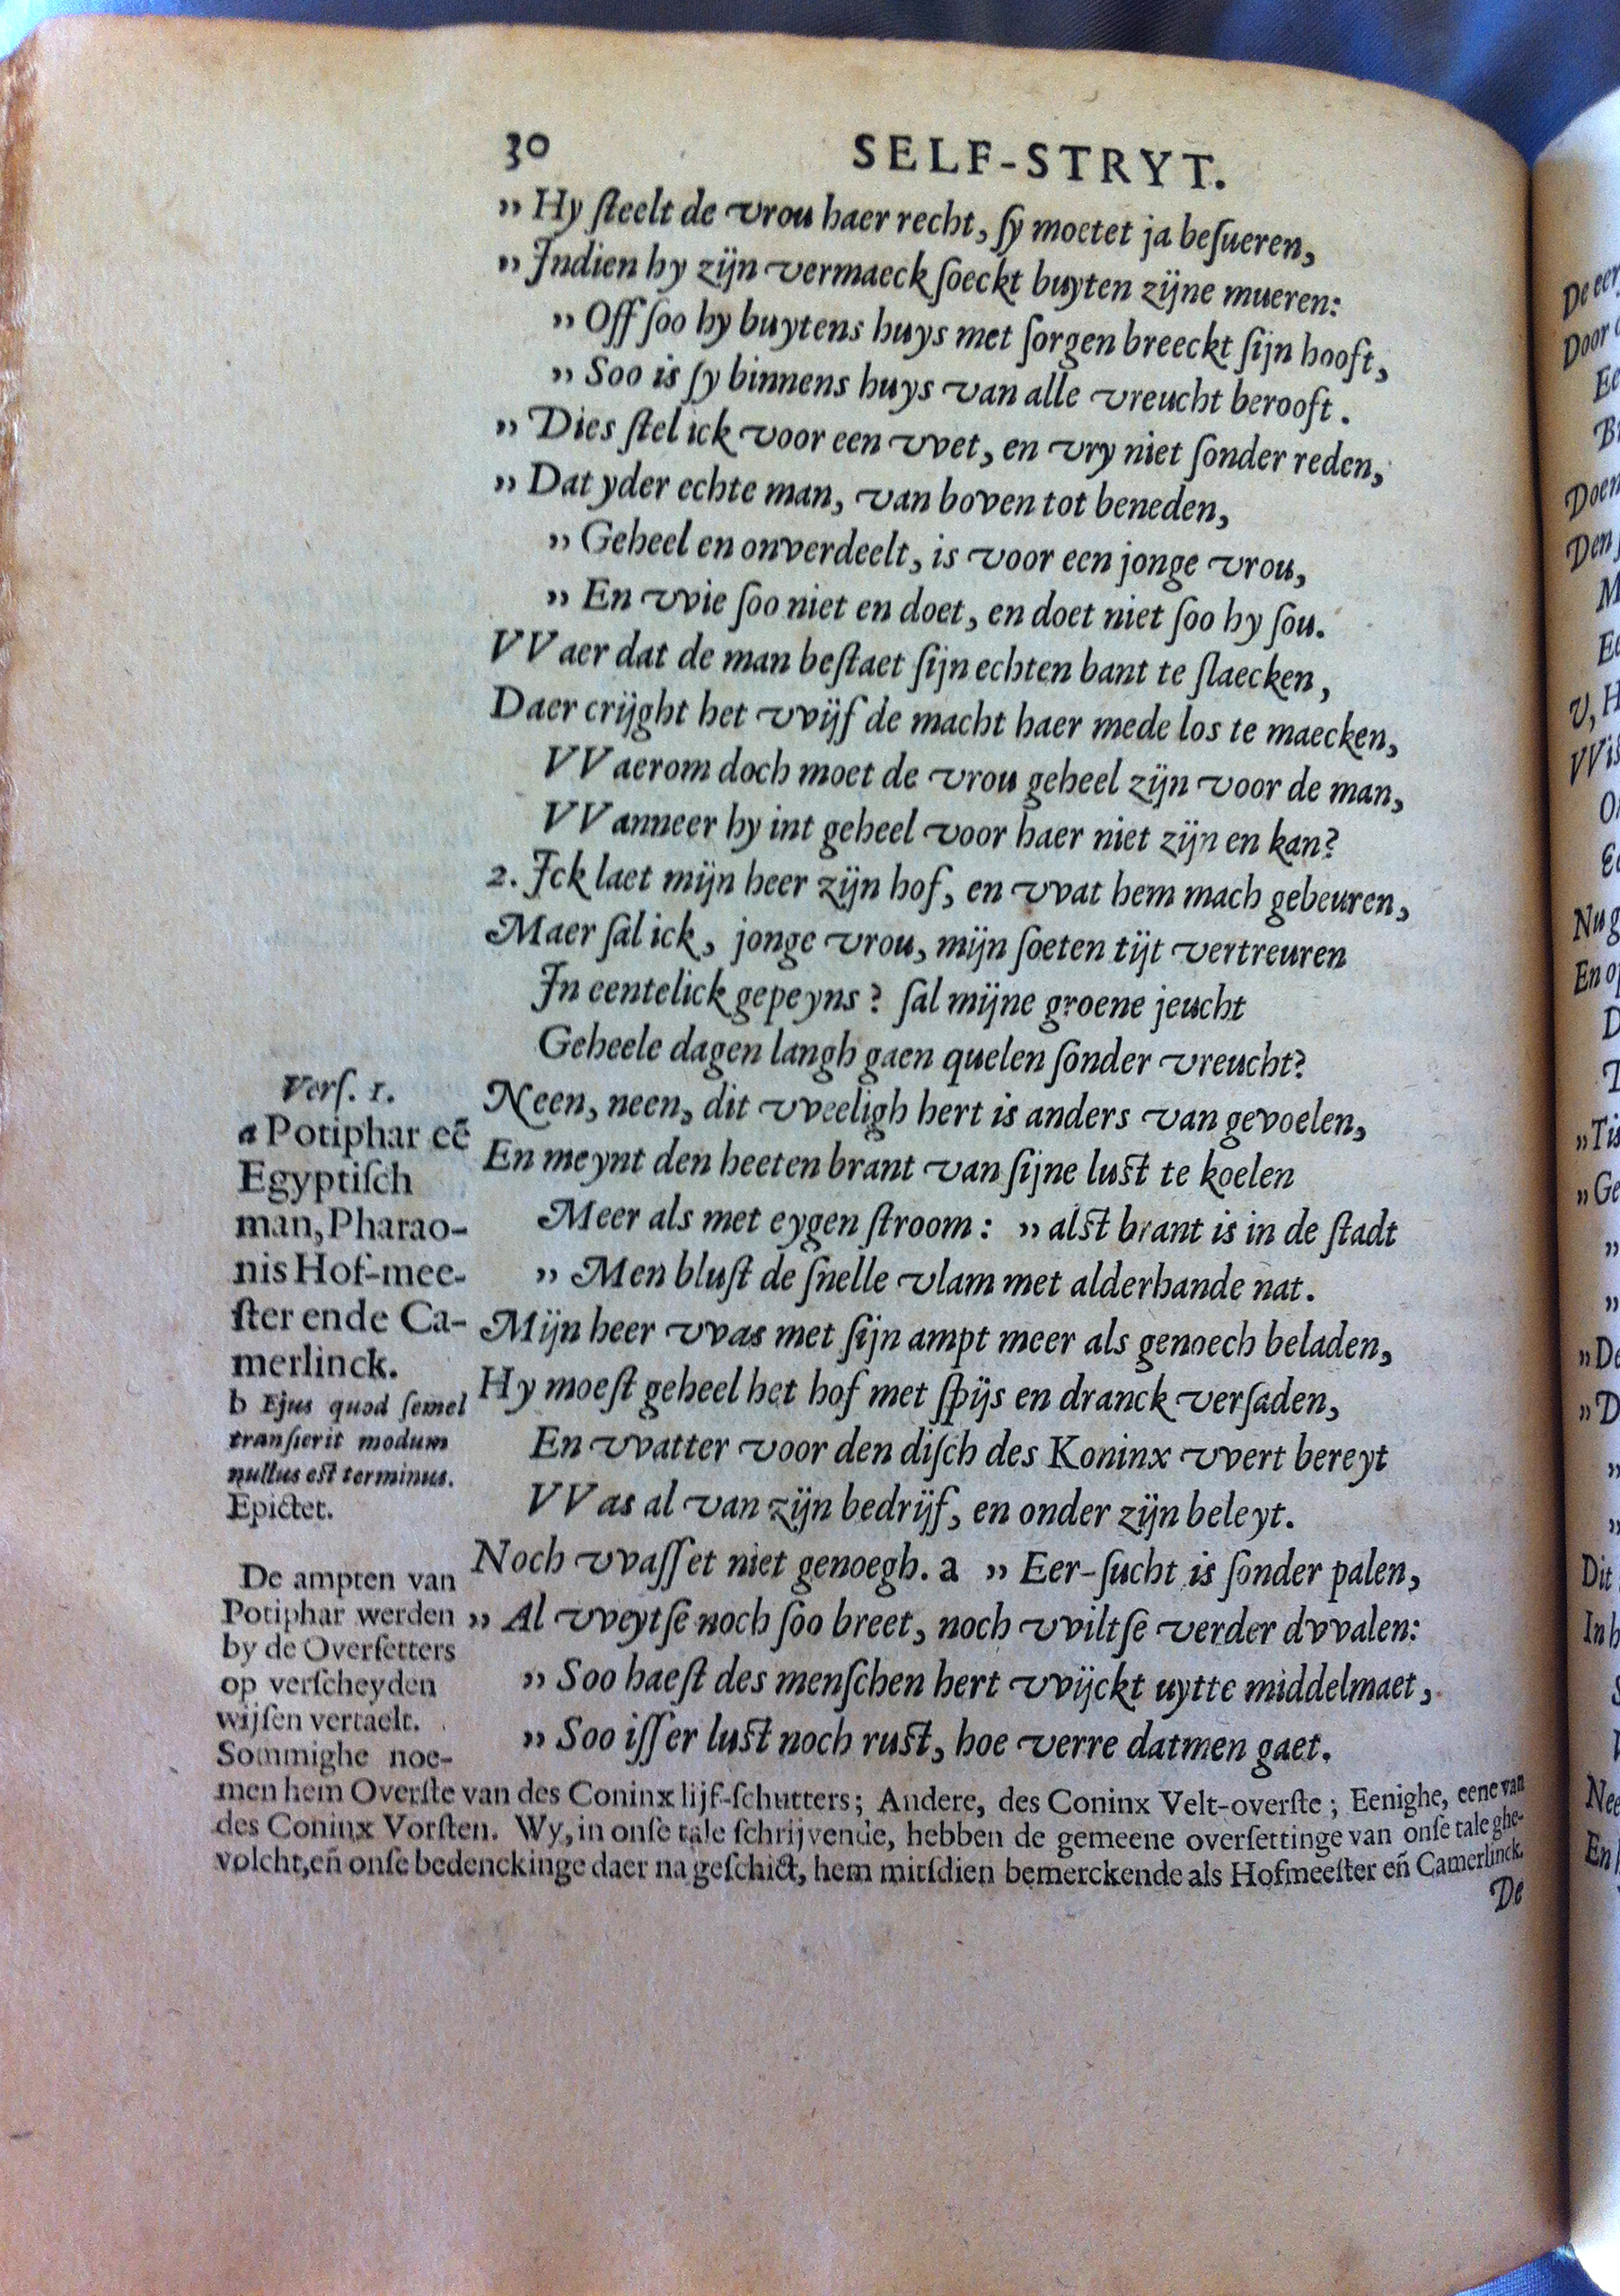 30 SELF-STRYT.
,, Hy ſteelt de vrou haer recht, ſy moetet ja beſueren,
,, Indien hy zijn vermaeck ſoeckt buyten zijne mueren:
,, Off ſoo hy buytens huys met ſorgen breeckt ſijn hooft,
,, Soo is ſy binnens huys van alle vreucht berooft.
,, Dies ſtel ick voor een vvet, en vry niet ſonder reden,
,, Dat yder echte man, van boven tot beneden,
,, Geheel en onverdeelt, is voor een jonge vrou,
,, En vvie ſoo niet en doet, en doet niet ſoo hy ſou.
VVaer dat de man beſtaet ſijn echten bant te ſlaecken,
Daer crijght het vvijf de macht haer mede los te maecken,
VVaerom doch moet de vrou geheel zijn voor de man,
VVanneer hy int geheel voor haer niet zijn en kan?
2. Ick laet mijn heer zijn hof, en vvat hem mach gebeuren,
Maer ſal ick, jonge vrou, mijn ſoeten tijt vertreuren
In eentelick gepeyns? ſal mijne groene jeucht
Geheele dagen langh gaen quelen ſonder vreucht?
Neen, neen, dit vveeligh hert is anders van gevoelen,
En meynt den heeten brant van ſijne luſt te koelen
Meer als met eygen ſtroom: ,, alſt brant is in de ſtadt
,, Men bluſt de ſnelle vlam met alderhande nat.
Mijn heer vvas met ſijn ampt meer als genoech beladen,
Hy moeſt geheel het hof met ſpijs en dranck verſaden,
En vvatter voor den diſch des Koninx vvert bereyt
VVas al van zijn bedrijf, en onder zijn beleyt.
Noch vvaſſet niet genoegh. a ,, Eer-ſucht is ſonder palen,
,, Al vveytſe noch ſoo breet, noch vviltſe verder dvvalen:
,, Soo haeſt des menſchen hert vvijckt uytte middelmaet,
,, Soo iſſer luſt noch ruſt, hoe verre datmen gaet.
Verſ. 1.
a Potiphar eē
Egyptiſch
man, Pharao-
nis Hof-mee-
ſter ende Ca-
merlinck.
b Ejus quod ſemel
tranſierit modum
nullus eſt terminus.
Epictet.
De ampten van
Potiphar werden
by de Overſetters
op verſcheyden
wijſen vertaelt.
Sommighe noe-
men hem Overſte van des Coninx lijf-ſchutters; Andere, des Coninx Velt-overſte; Eenighe, eene van
des Coninx Vorſten. Wy, in onſe tale ſchrijvende, hebben de gemeene overſettinge van onſe tale ghe-
volcht, en̄ onſe bedenckinge daer na geſchict, hem mitſdien bemerckende als Hofmeeſter en̄ Camerlinck.
De